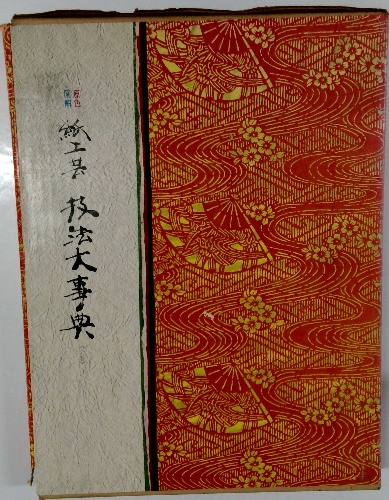 原色
図解
紙工芸 技法大事典